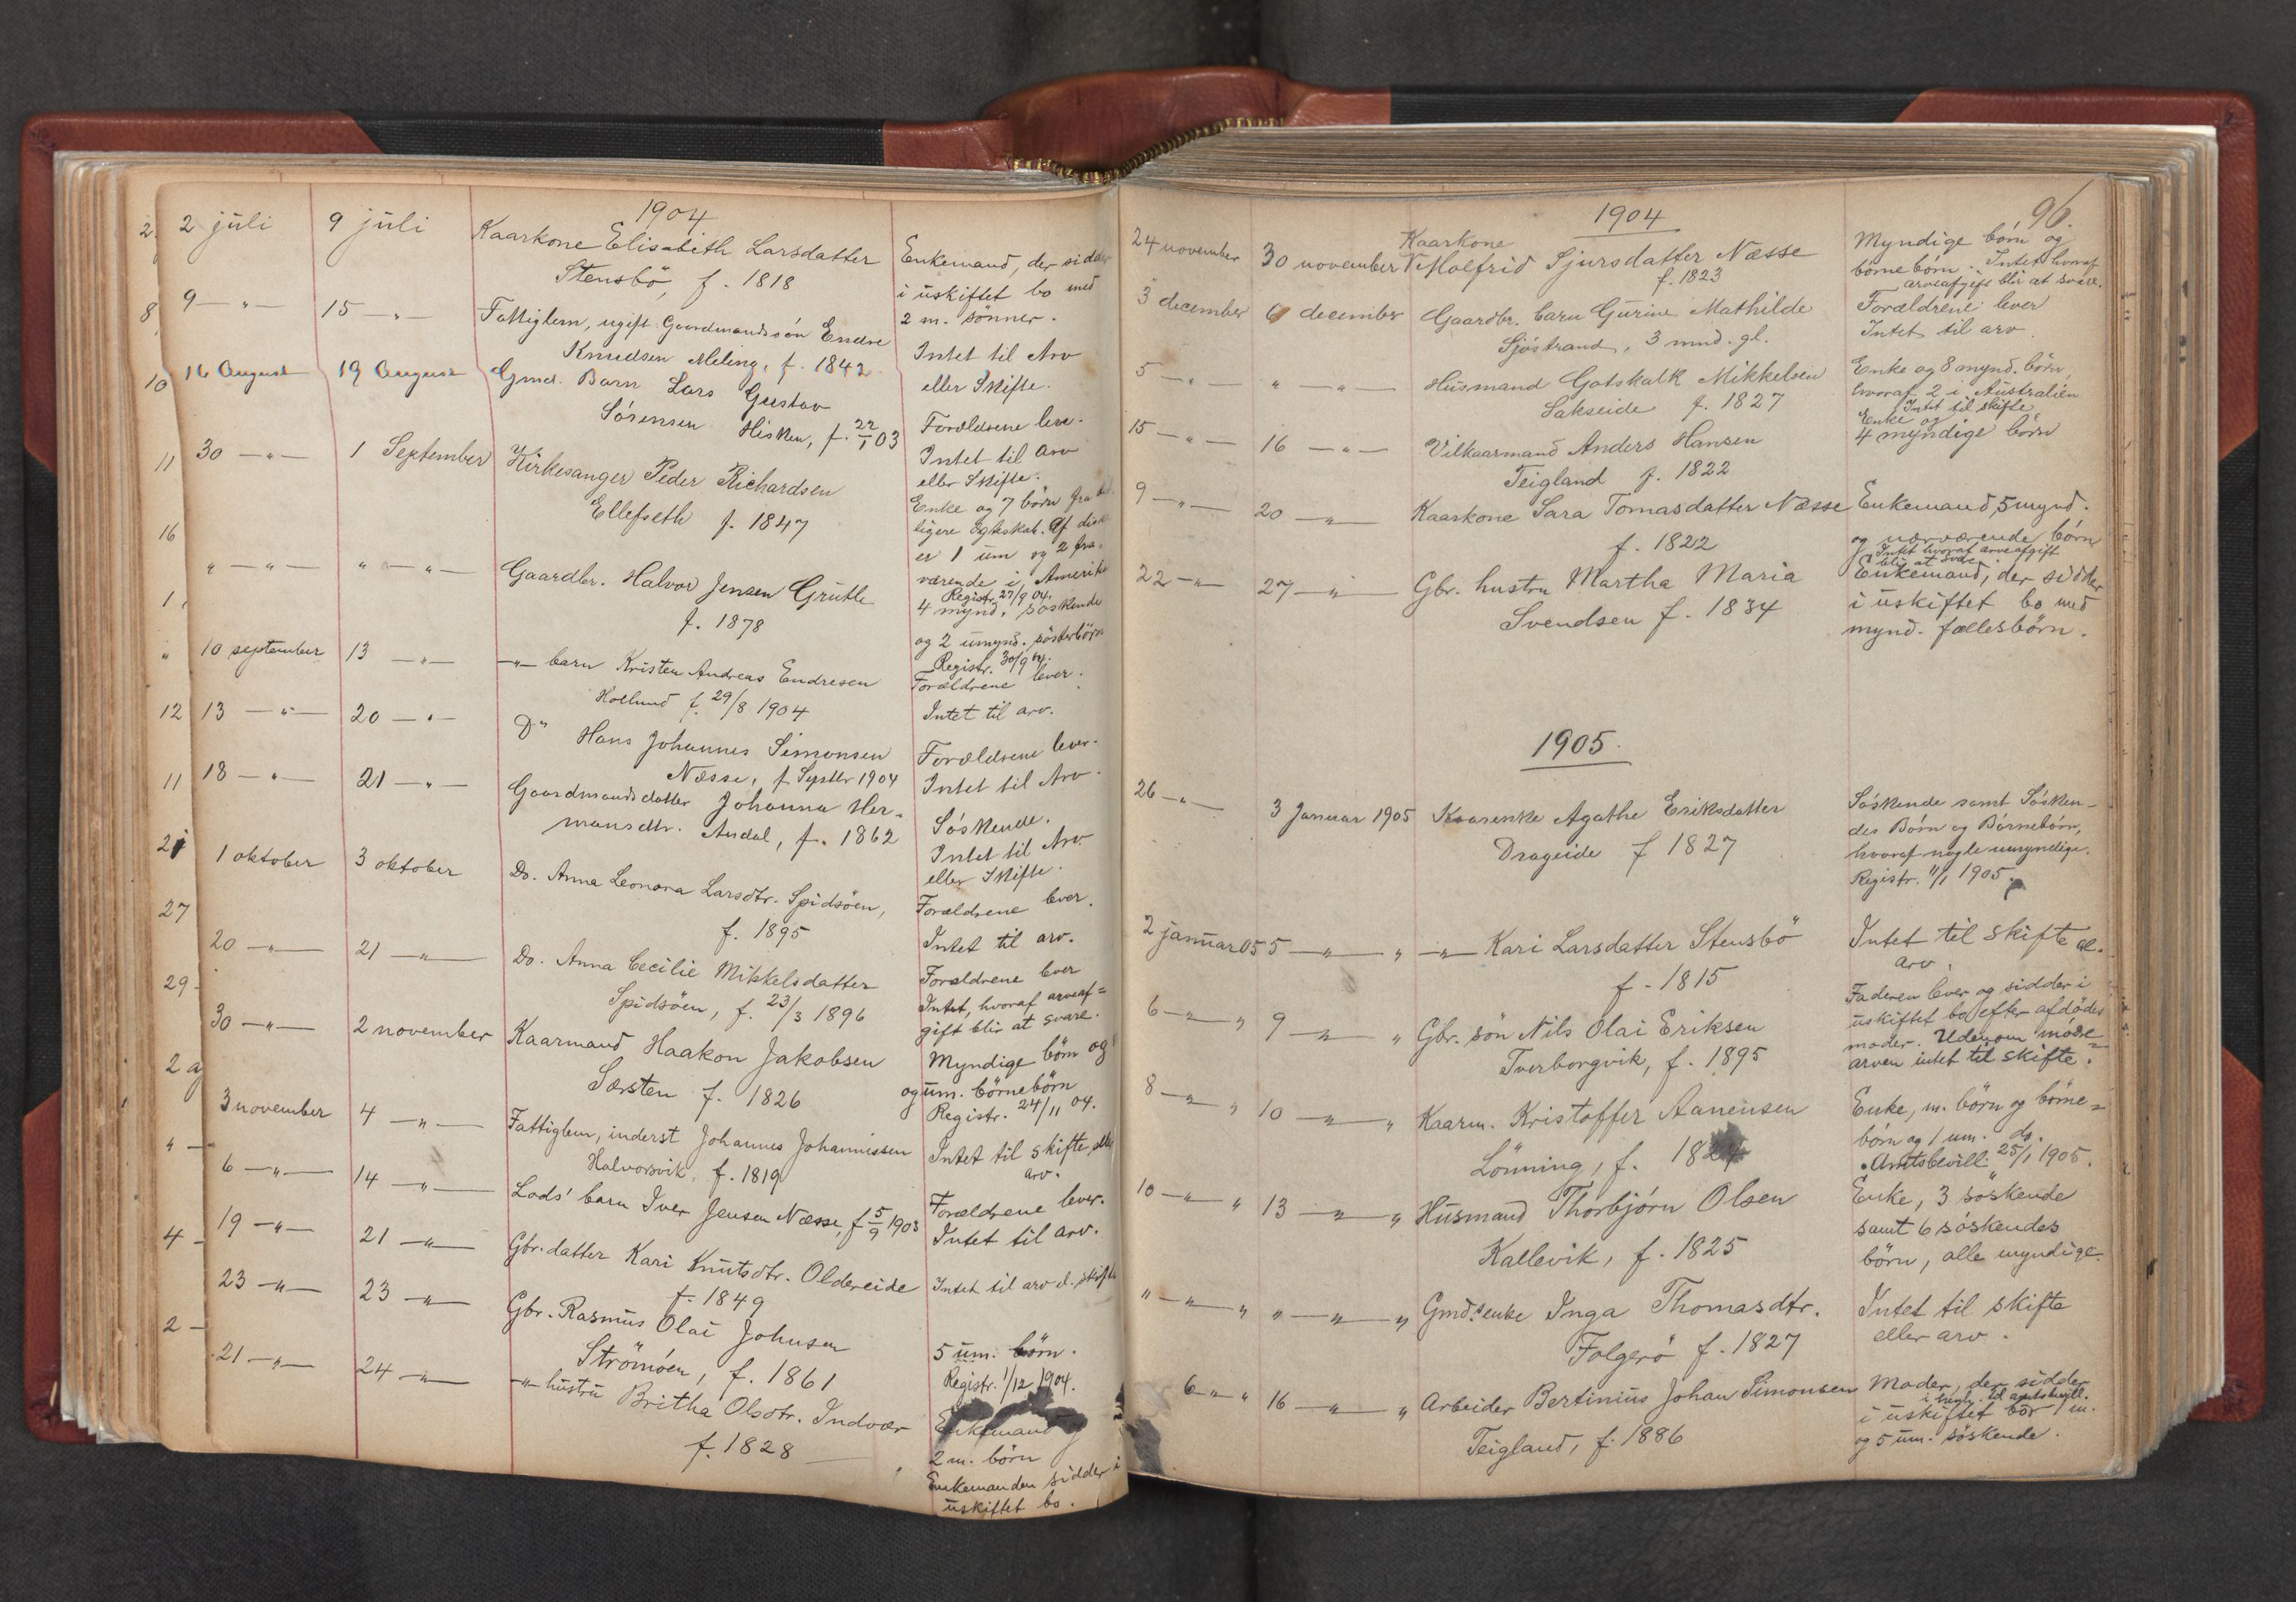 1904
2 2 juli 9 juli Kaarkone Elisabeth Larsdatter Enkemand, der sidder
Stensbö, f. 1818 i uskiftet bo med
2 m. sönner.
8 9 — " — 15 — " — Fattiglem, ugift Gaardmandssön Endre Intet til Arv
Knudsen Meling, f. 1842 eller Skifte.
10 16 August 19 August Gmd. Barn Lars Gustav Forældrene leve.
Sörensen Hisken, f. 22/1 03 Intet til Arv
eller Skifte.
11 30 — " — 1 September Kirkesanger Peder Richardsen Enke og 7 börn fra
Ellefseth f. 1847 ligere Egteskab. Af disse
er 1 um og 2 fra-
værende i Amerika
Registr. 27/9 04.
16 " — " — " — " — Gaardbr. Halvor Jensen Grutle 4 mynd. söskende
f. 1878 og 2 umynd. sösterbörn
Registr. 30/9 04.
1 " 10 september 13 — " — — " — barn Kristen Andreas Endresen Forældrene lever.
Hollund f. 29/8 1904 Intet til arv.
12 13 — " — 20 — " — D" Hans Johannes Simonsen Forældrene lever.
Næsse, f. Septbr 1904 Intet til Arv.
11 18 — " — 21 — " — Gaardmandsdatter Johanna Her- Söskende.
mansdtr. Andal, f. 1862 Intet til Arv
eller Skifte.
21 1 oktober 3 oktober Do. Anna Leonora Larsdtr. Spidsöen, Forældrene lever.
f. 1895 Intet til arv.
27 20 — " — 21 — " — Do. Anna Cecilie Mikkelsdatter Forældrene lever
Spidsöen, f. 23/3 1896 Intet, hvoraf arveaf=
gift blir at svare.
29 30 — " — 2 november Kaarmand Haakon Jakobsen Myndige börn og
Særsten f. 1826 og um. börnebörn
Registr. 24/11 04.
2 3 november 4 — " — Fattiglem, inderst Johannes Johannessen Intet til skifte eller
Halvorsvik, f. 1819 arv.
" 6 — " — 14 — " — Lods' barn Iver Jensen Næsse, f. 5/9 1903 Forældrene lever.
Intet til arv.
4 19 — " — 21 — " — Gbr. datter Kari Knutsdtr. Oldereide Intet til arv el. skifte
f. 1849
23 — " — 23 — " — Gbr. Rasmus Olai Johnsen 5 um. börn.
Strömöen, f. 1861 Registr. 1/12 1904.
2 21 — " — 24 — " — — " — hustru Britha Olsdtr. Indvær Enkemand
f. 1828 2 m. börn
Enkemanden sidder i
uskiftet bo.
96.
1904
24 november 30 november Kaarkone Myndige börn og
Malfrid Sjursdatter Næsse börnebörn. Intet hvoraf
f. 1823 arveafgift blir at svare.
3 december 6 december Gaardbr. barn Gurine Mathilde Forældrene lever
Sjöstrand, 3 mnd. gl. Intet til arv.
5 — " — " — " — Husmand Gotskalk Mikkelsen Enke og 8 mynd. börn,
Sakseide f. 1827 hvoraf 2 i Australien
Intet til skifte
15 — " — 16 — " — Vilkaarmand Anders Hansen Enke og
Teigland f. 1822 4 myndige börn
9 — " — 20 — " — Kaarkone Sara Tomasdatter Næsse Enkemand, 5 mynd.
f. 1822 og nærværende börn
Intet hvoraf arveafgift
blir at svare.
22 — " — 27 — " — Gbr. hustru Martha Maria Enkemand, der sidder
Svendsen f. 1834 i uskiftet bo med
mynd. fællesbörn.
1905.
26 — " — 3 Januar 1905 Kaarenke Agathe Eriksdatter Söskende samt Sösken-
Drageide f. 1827 des Börn og Börnebörn,
hvoraf nogle umyndige.
Registr. 11/1 1905.
2 januar 05 5 — " — " — " — Kari Larsdatter Stensbö Intet til skifte el.
f. 1815 arv.
6 — " — " 9 — " — " Gbr. sön Nils Olai Eriksen Faderen lever og sidder i
Tverborgvik, f. 1895 uskiftet bo efter afdöde
moder. Udenom mödre=
arven intet til skifte.
8 — " — " 10 — " — " Kaarm. Kristoffer Aanensen Enke, m. börn og börne=
Lönning, f. 1824 börn og 1 um. do.
Amtsbevill. 25/1 1905.
10 — " — " 13 — " — " Husmand Thorbjörn Olsen Enke, 3 söskende
Kallevik, f. 1825 samt 6 söskendes
börn, alle myndige.
" — " — " " — " — " Gmds enke Inga Thomasdtr. Intet til skifte
Folgerö f. 1827 eller arv.
6 — " — " 16 — " — " Arbeider Bertinius Johan Simonsen Moder, der sidder
Teigland, f. 1886 i uskiftet bo, 1 m.
og 5 um. söskende.